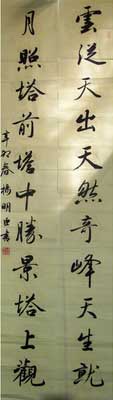 雲從天出天然奇峰天生就
月照塔前塔中勝景塔上觀
辛卯春楊明臣書